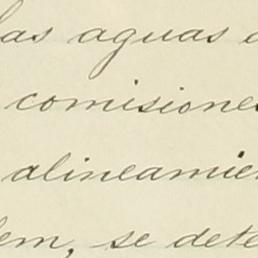 las aguas d
comisiones
alineamien
dem, se dete